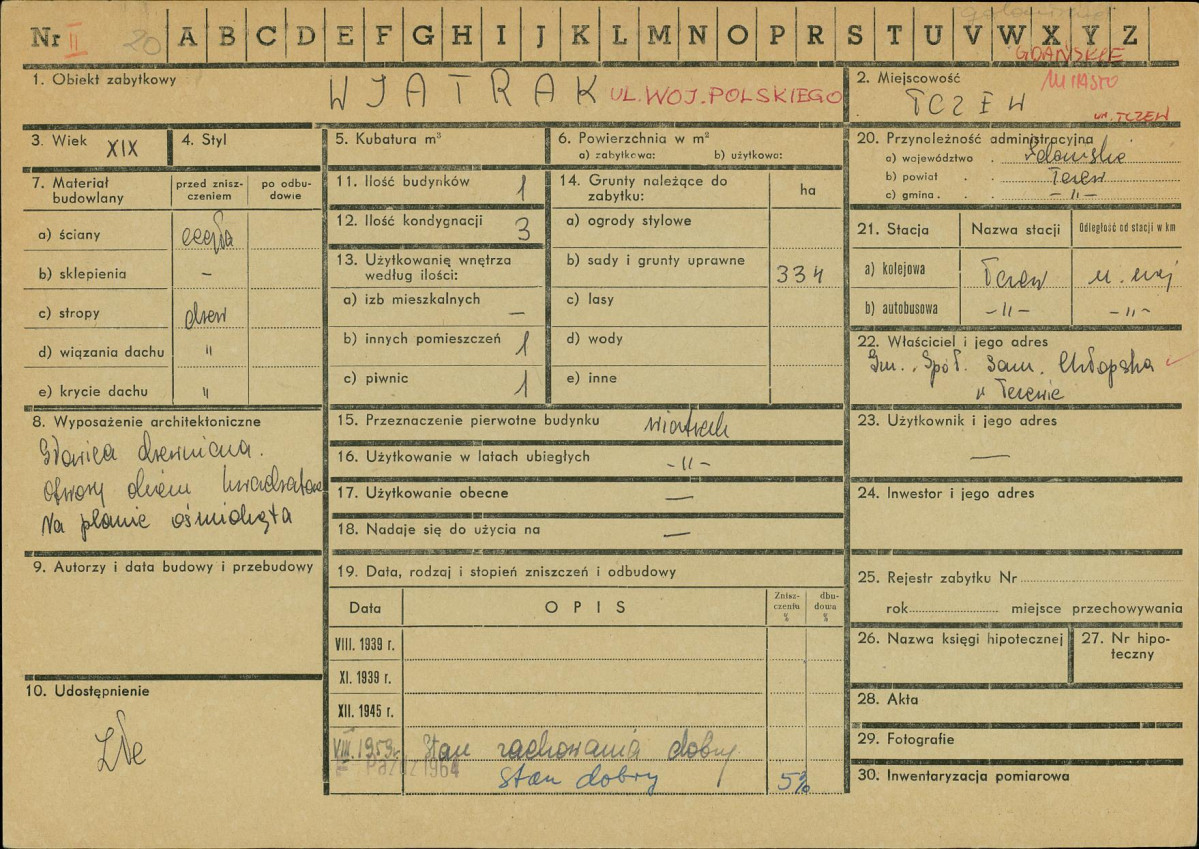 Nr II 20 A B C D E F G H I J K L M N O P R S T U V W X Y Z
GDAŃSKIE
1. Obiekt zabytkowy
WJATRAK UL. WOJ. POLSKIEGO
2. Miejscowość
MIASTO
TCZEW
TCZEW
3. Wiek XIX
4. Styl
5. Kubatura m³
6. Powierzchnia w m²
a) zabytkowa: b) użytkowa:
7. Materiał budowlany
przed znisz-
czeniem
po odbu-
dowie
a) ściany cegła
b) sklepienia –
c) stropy drew
d) wiązania dachu "
e) krycie dachu "
8. Wyposażenie architektoniczne
drewniana.
Otwory okien
Na planie ośmiokąta
9. Autorzy i data budowy i przebudowy
10. Udostępnienie
Złe
11. Ilość budynków 1
12. Ilość kondygnacji 3
13. Użytkowanię wnętrza
według ilości:
a) izb mieszkalnych –
b) innych pomieszczeń 1
c) piwnic 1
14. Grunty należące do
zabytku:
ha
a) ogrody stylowe
b) sady i grunty uprawne 334
c) lasy
d) wody
e) inne
15. Przeznaczenie pierwotne budynku wiatrak
16. Użytkowanie w latach ubiegłych -"-
17. Użytkowanie obecne —
18. Nadaje się do użycia na —
19. Data, rodzaj i stopień zniszczeń i odbudowy
Data
OPIS
Znisz-
czenia
%
dbu-
dowa
%
VIII. 1939 r.
XI. 1939 r.
XII. 1945 r.
VIII. 1959 r. Stan zachowania dobry.
Paźdz 1964 stan dobry 5%
20. Przynależność administracyjna
a) województwo Gdańskie
b) powiat Tczew
c) gmina -"-
21. Stacja
Nazwa stacji
Odległość od stacji w km
a) kolejowa Tczew
b) autobusowa -"- -"-
22. Właściciel i jego adres
Gm. Spół. Sam. Chłopska
w Tczewie
23. Użytkownik i jego adres
—
24. Inwestor i jego adres
25. Rejestr zabytku Nr
rok miejsce przechowywania
26. Nazwa księgi hipotecznej
27. Nr hipo-
teczny
28. Akta
29. Fotografie
30. Inwentaryzacja pomiarowa